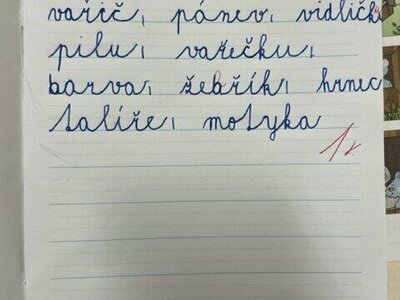 vařič, pánev, vidličk
pilu, vařečku,
barva, žebřík, hrnec
talíře, motyka
1